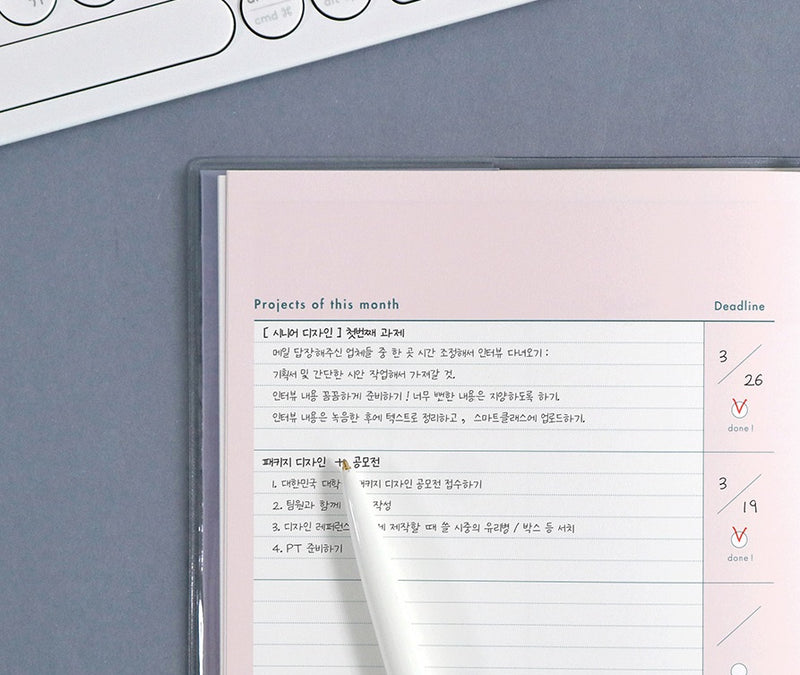 cmd ⌘
alt
Projects of this month
Deadline
[ 시니어 디자인 ] 첫번째 과제
메일 답장해주신 업체들 중 한 곳 시간 조정해서 인터뷰 다녀오기 :
기획서 및 간단한 시안 작업해서 가져갈 것.
인터뷰 내용 꼼꼼하게 준비하기 ! 너무 뻔한 내용은 지양하도록 하기.
인터뷰 내용은 녹음한 후에 텍스트로 정리하고 , 스마트클래스에 업로드하기.
3 / 26
done!
패키지 디자인 + 공모전
1. 대한민국 대학 패키지 디자인 공모전 접수하기
2. 팀원과 함께 작성
3. 디자인 레퍼런스 제작할 때 쓸 시중의 유리병 / 박스 등 서치
4. PT 준비하기
3 / 19
done!